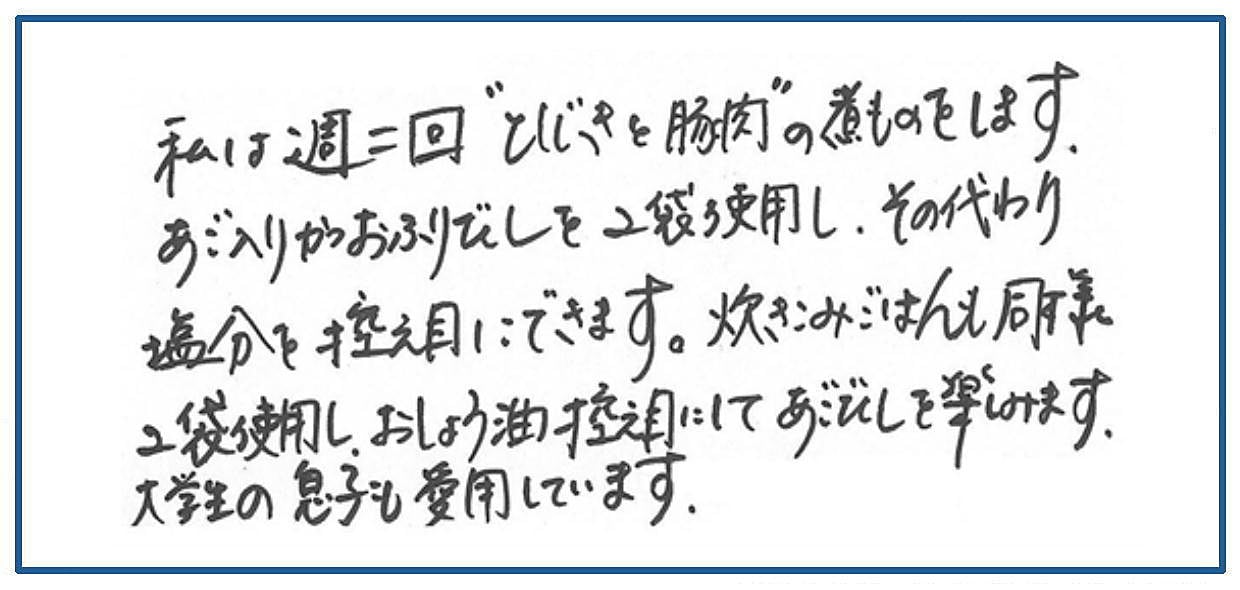 私は週二回“ひじきと豚肉”の煮ものをします.
あご入りかつおふりだしを2袋使用し.その代わり
塩分を控え目にできます。炊きこみごはんも同様
2袋使用し.おしょう油控え目にしてあごだしを楽しみます.
大学生の息子も愛用しています.